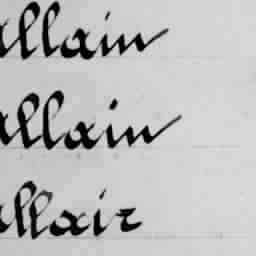 allain
allain
allair